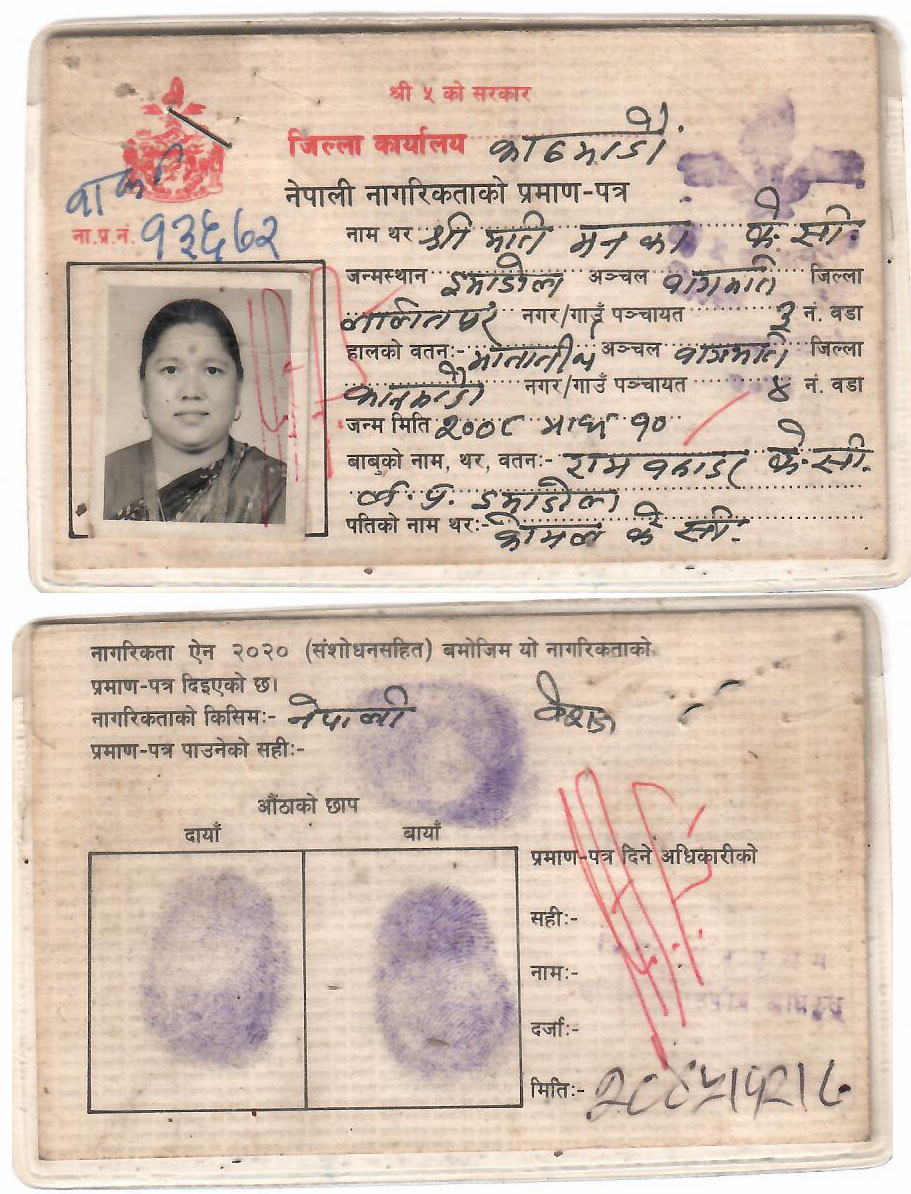 श्री ५ को सरकार
जिल्ला कार्यालय काठमाडौं
नेपाली नागरिकताको प्रमाण-पत्र
ना.प्र.नं. १३६७२
नाम थर श्री मति मनका के. सी.
जन्मस्थान इमाडोल अञ्चल वागमति जिल्ला
नगर/गाउँ पञ्चायत ३ नं. वडा
हालको वतन:- मातातीर्थ अञ्चल वागमति जिल्ला
काठमाडौं नगर/गाउँ पञ्चायत ४ नं. वडा
जन्म मिति २००८ माघ १०
बाबुको नाम, थर, वतन:- राम बहादुर के. सी.
ल. पु. इमाडोल
पतिको नाम थर:- कोमल के सी.
नागरिकता ऐन २०२० (संशोधनसहित) बमोजिम यो नागरिकताको
प्रमाण-पत्र दिइएको छ।
नागरिकताको किसिम:- नेपाली
प्रमाण-पत्र पाउनेको सही:-
औंठाको छाप
दायाँ बायाँ
प्रमाण-पत्र दिने अधिकारीको
सही:-
नाम:-
दर्जा:-
मिति:- २०४५।१२।७